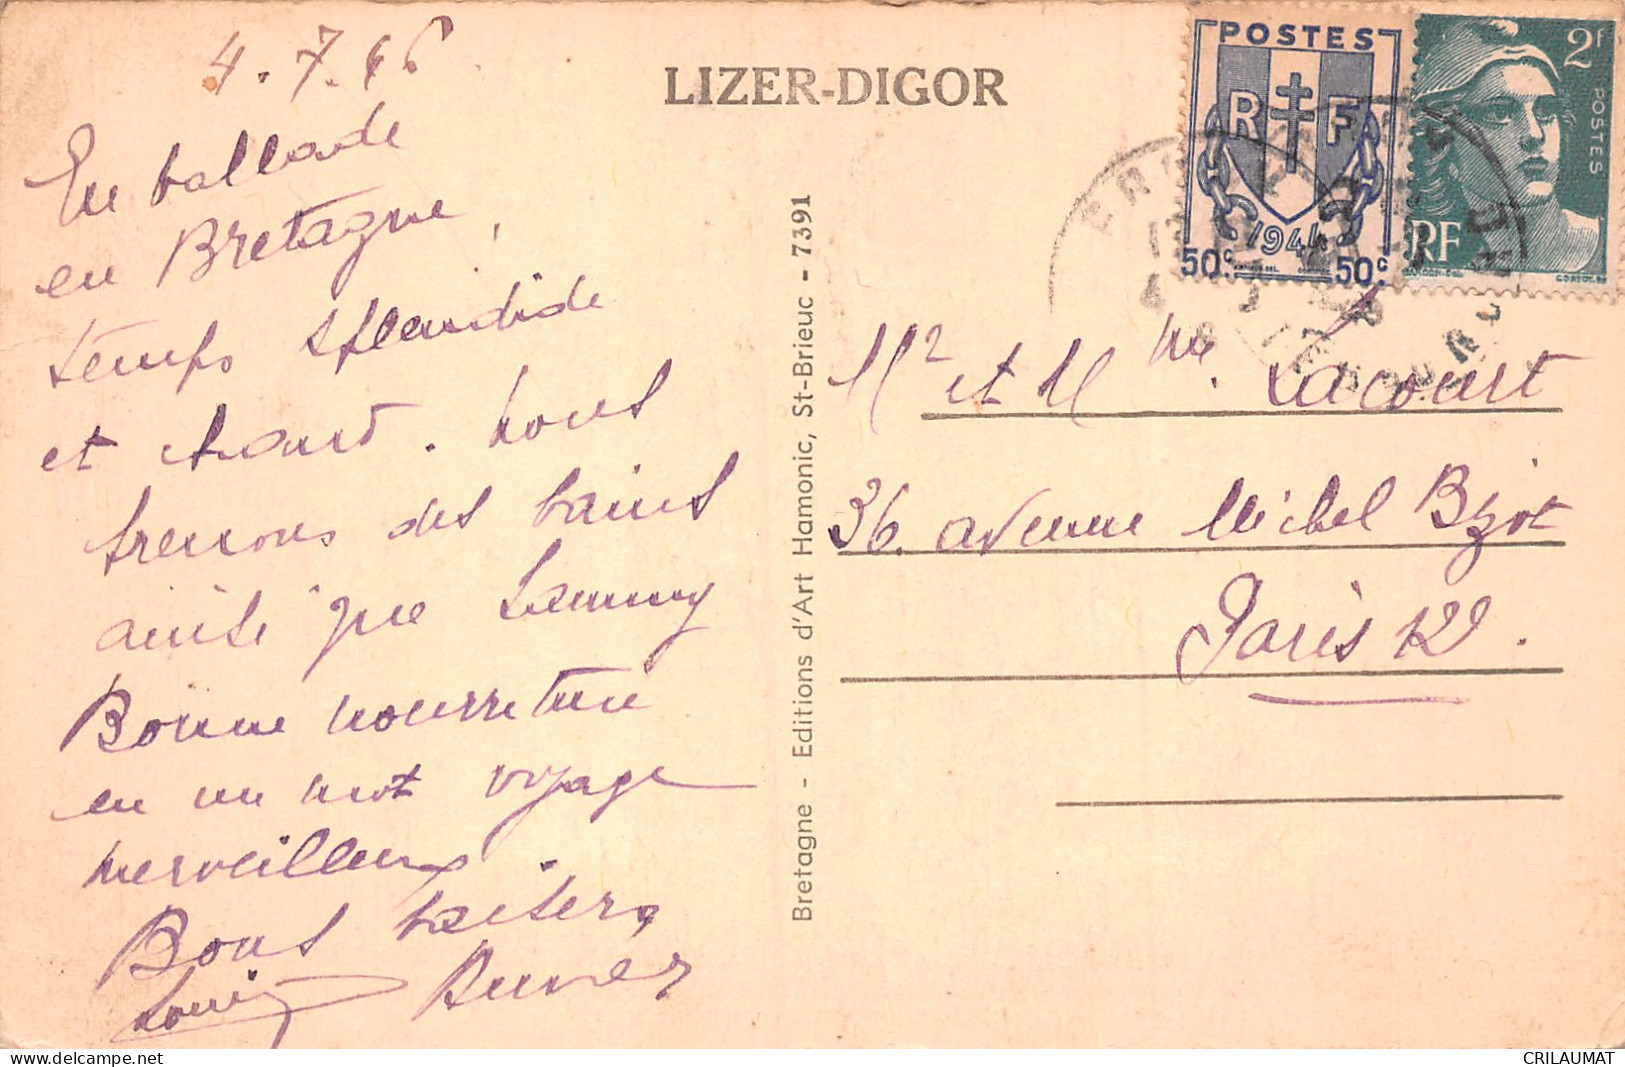 4.7.46
LIZER-DIGOR
POSTES
RF
1944
50c 50c
2f
POSTES
RF
En ballade
en Bretagne,
temps splendide
et chaud. Nous
prenons des bains
ainsi que
Bonne nourriture
en un mot voyage
merveilleux.
Bons baisers
Bretagne - Editions d'Art Hamonic, St-Brieuc - 7391
Mr et Mme. Lacourt
36. avenue Michel Bizot
Paris 12e.
www.delcampe.net
CRILAUMAT